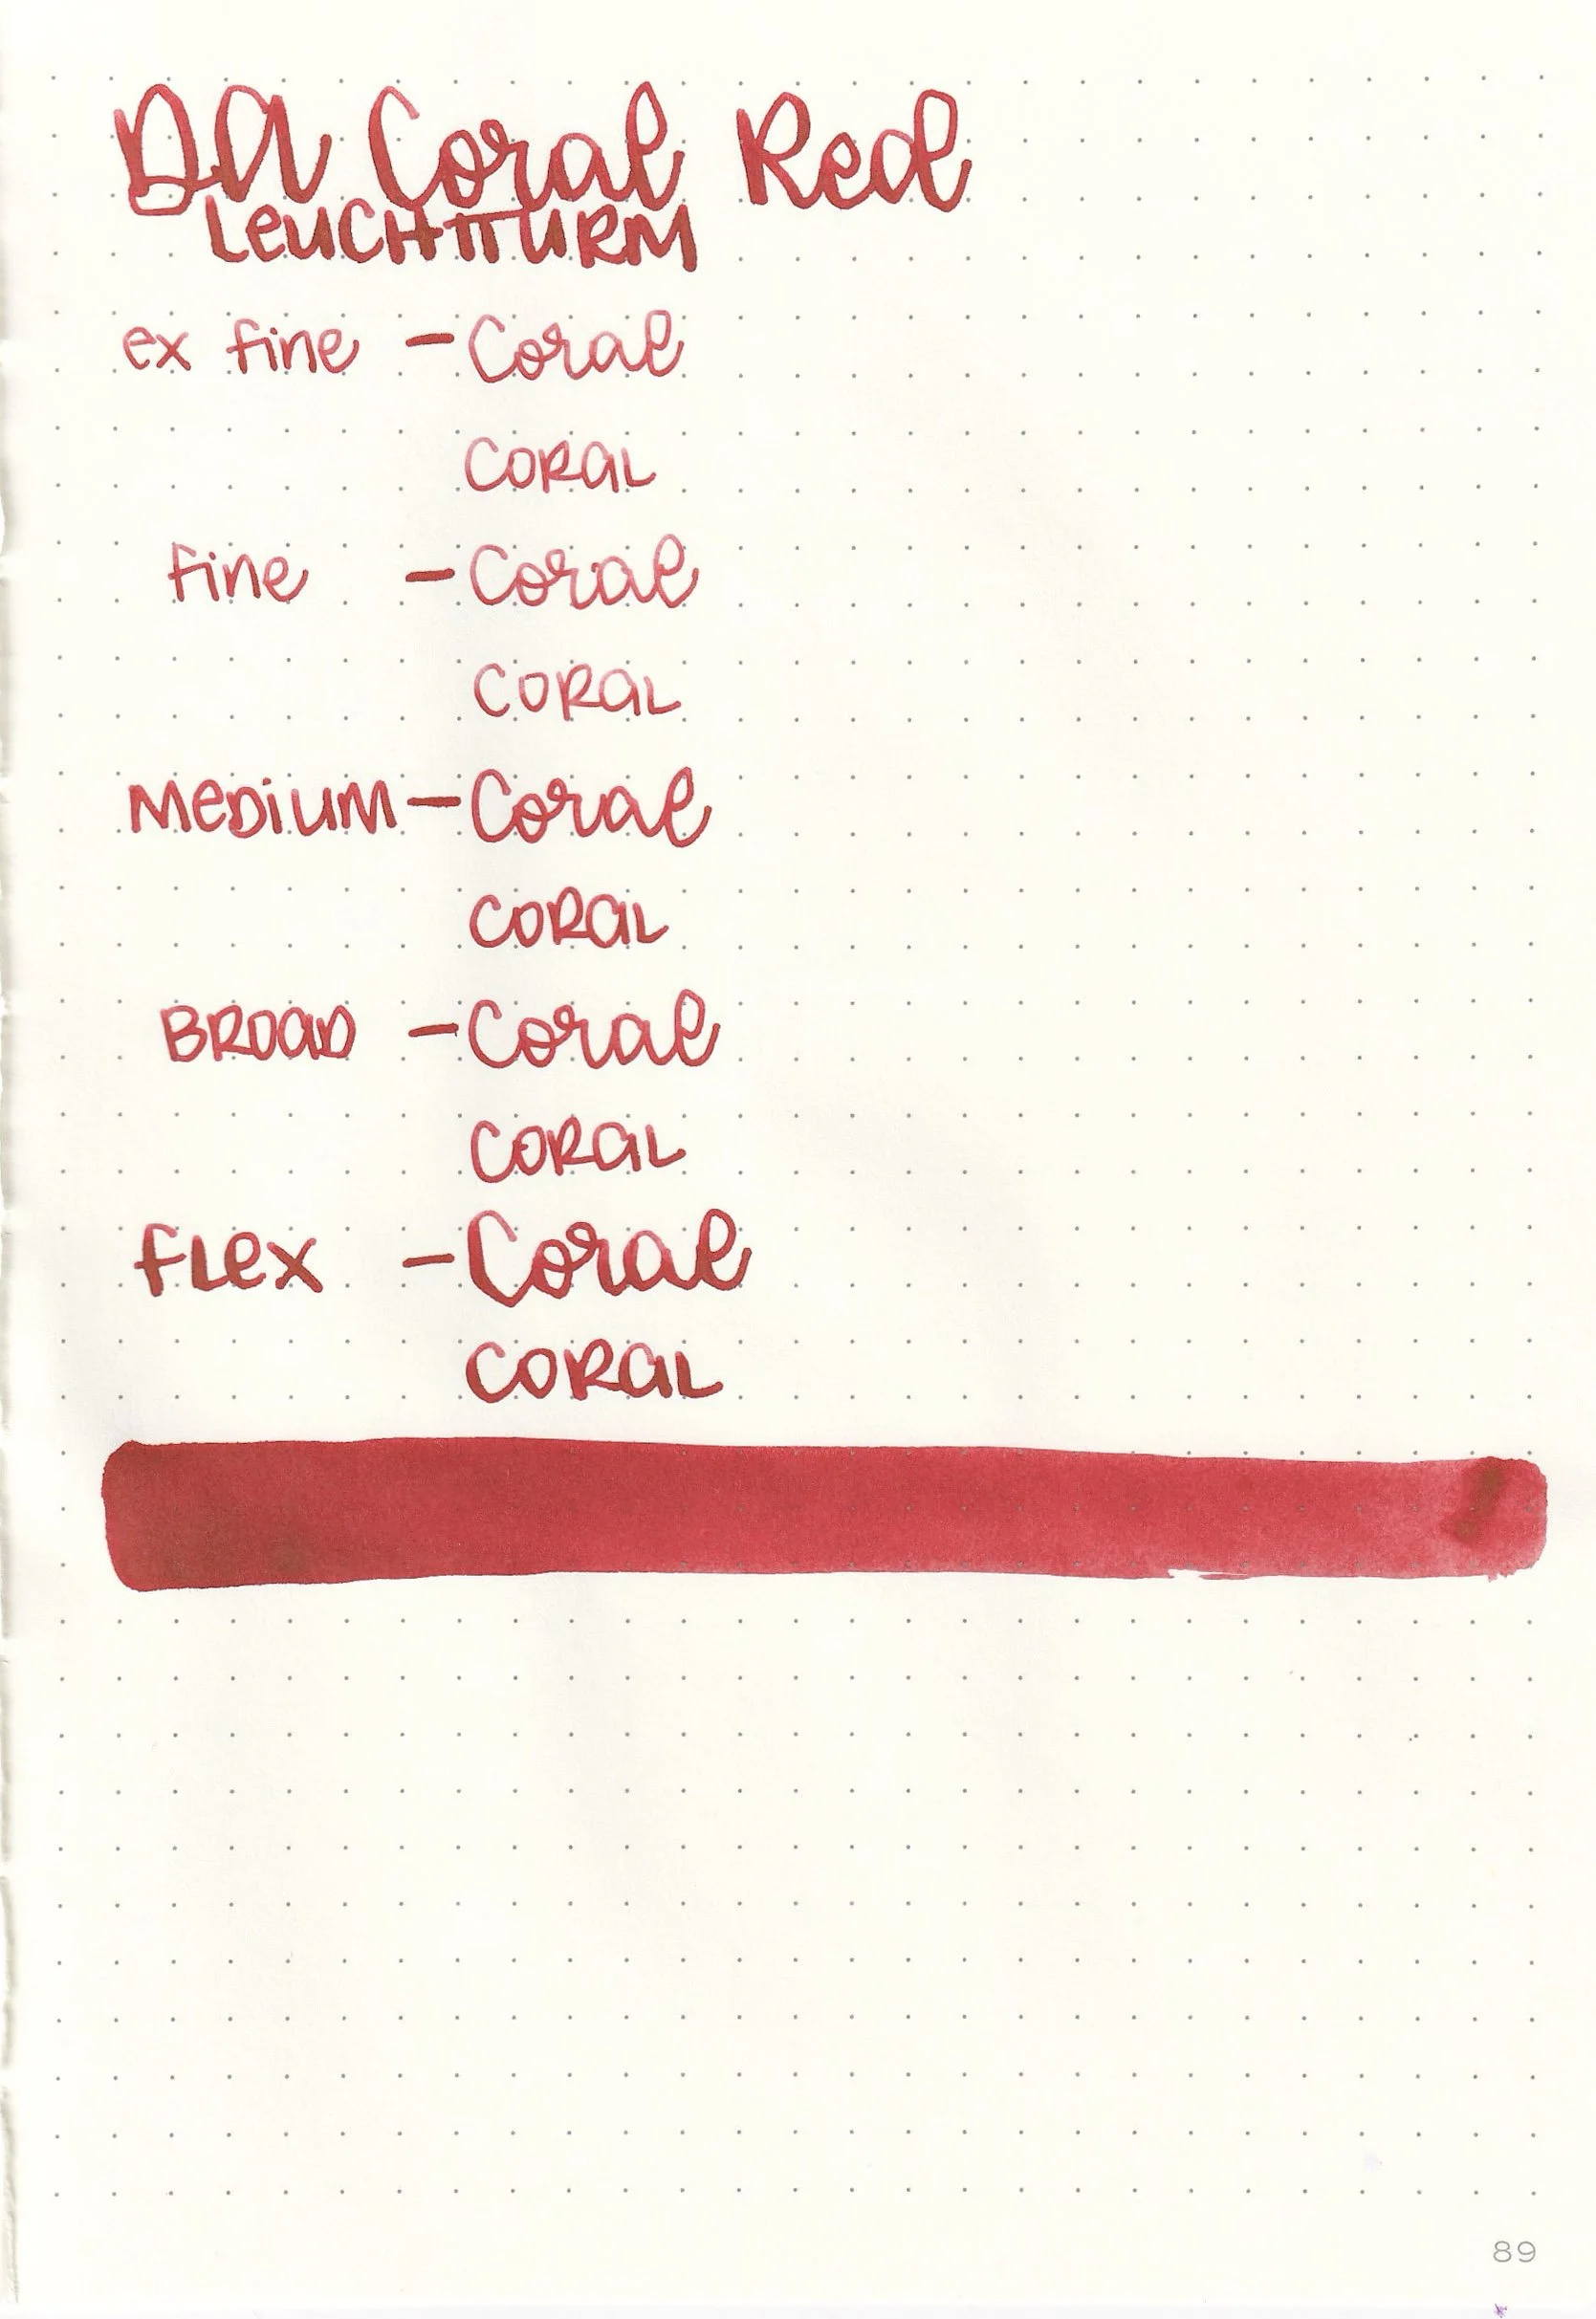 DA Coral Red
LEUCHTTURM
ex fine - Coral
CORAL
fine - Coral
CORAL
MEDIUM - Coral
CORAL
BROAD - Coral
CORAL
FLEX - Coral
CORAL
89